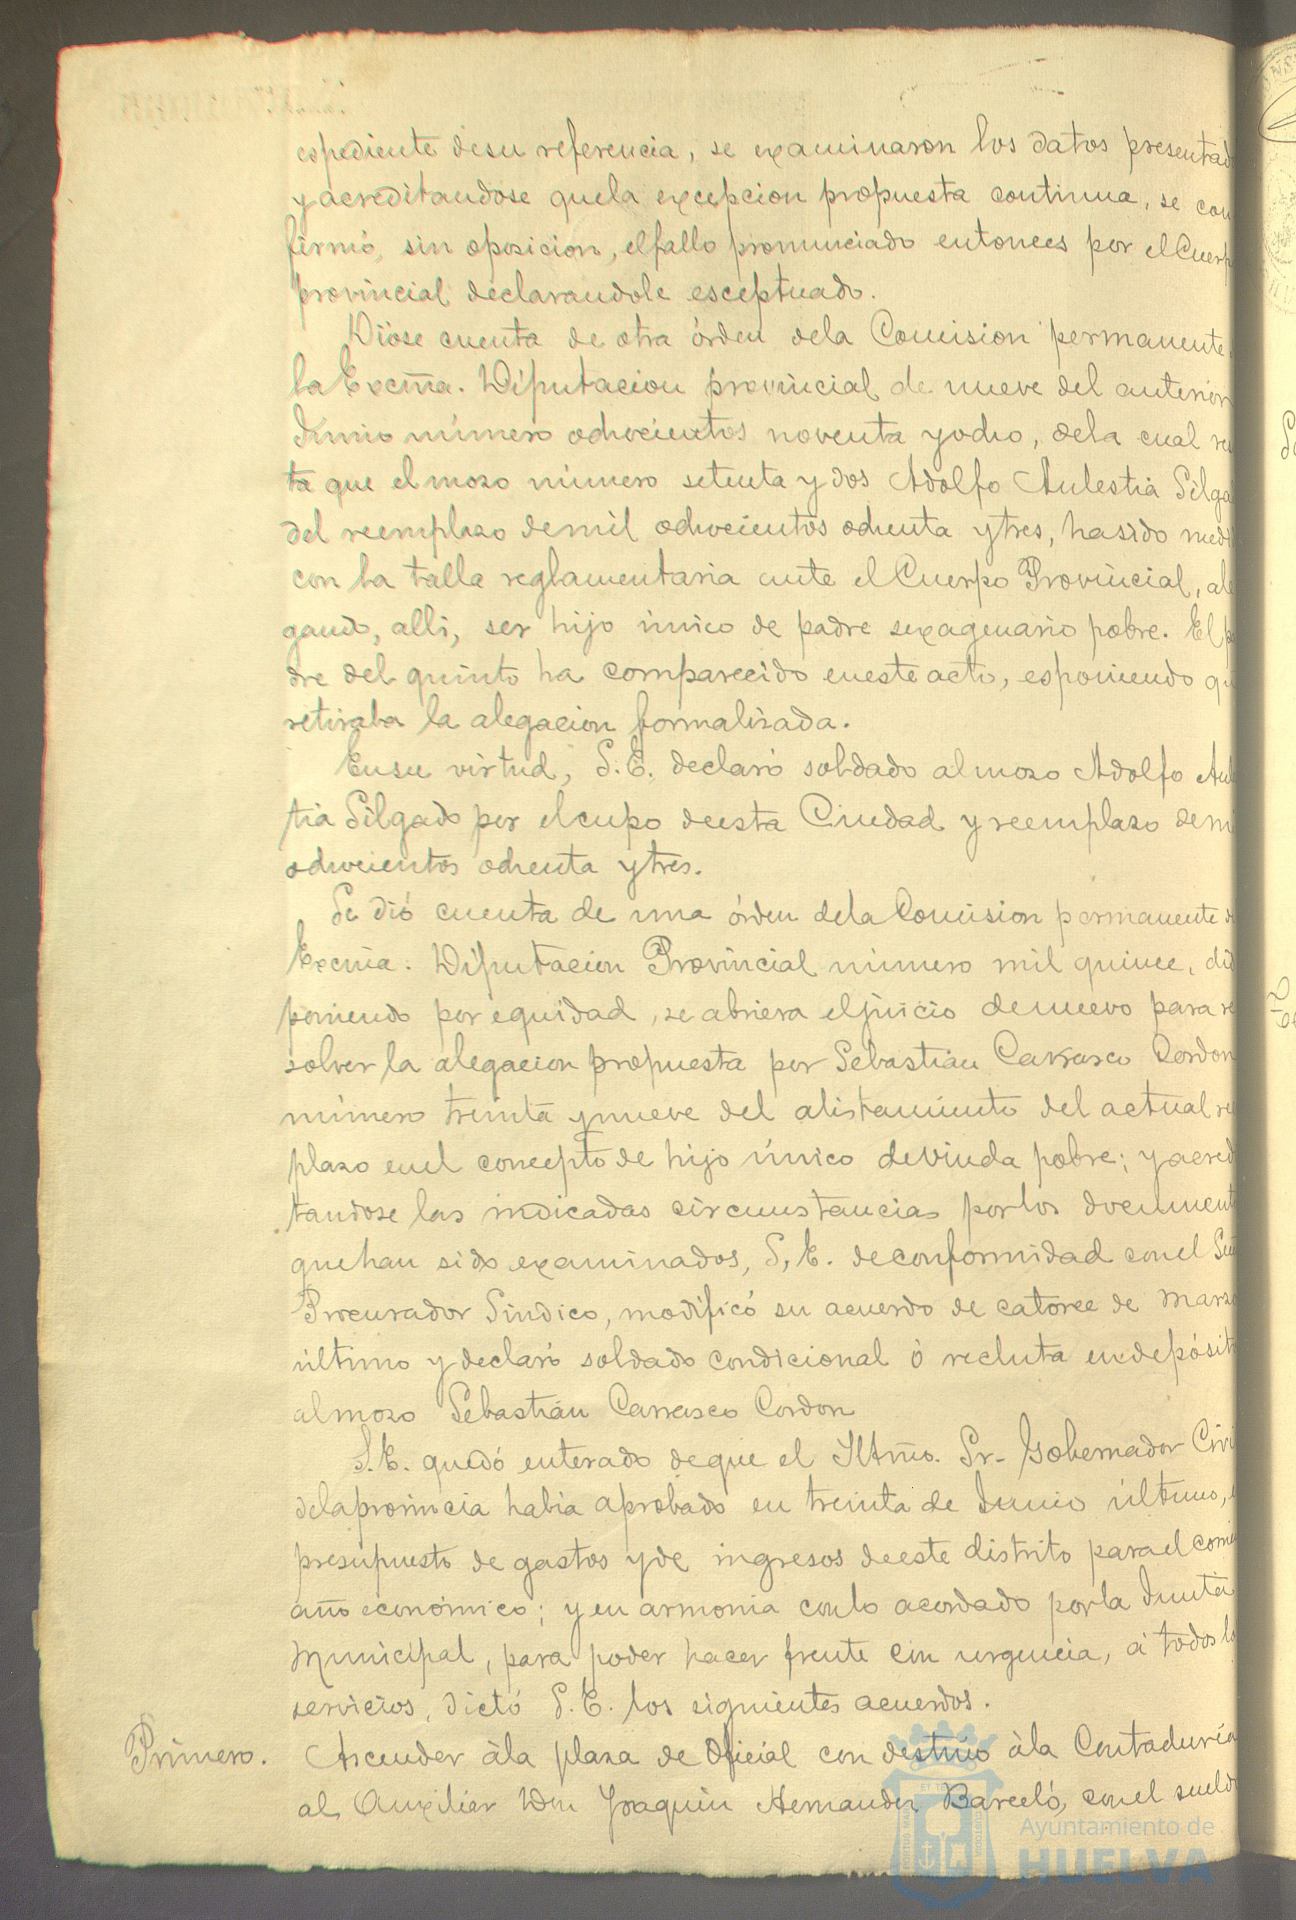 espediente desu referencia, se examinaron los datos presentad
y acreditandose quela excepcion propuesta continua, se con
firmó, sin oposicion, elfallo pronunciado entonces por el Cuerp
provincial declarandole esceptuado.
Dióse cuenta de otra órden dela Comision permanente
la Excma. Diputacion provincial de nueve del anterior
Junio número ochocientos noventa yocho, dela cual re
ta que el mozo número setenta y dos Adolfo Aulestia Silga
del reemplazo demil ochocientos ochenta ytres, hasido medi
con la talla reglamentaria ante el Cuerpo Provincial, ale
gando, alli, ser hijo único de padre sexagenario pobre. El p
dre del quinto ha comparecido eneste acto, esponiendo qu
retiraba la alegacion formalizada.
Ensu virtud, S.E. declaró soldado almozo Adolfo Aul
tia Silgado por elcupo deesta Ciudad y reemplazo demi
ochocientos ochenta ytres.
Se dió cuenta de una órden dela Comision permanente d
Excma. Diputacion Provincial número mil quince, dis
poniendo por equidad, se abriera eljuicio denuevo para re
solver la alegacion propuesta por Sebastián Carrasco Cordon
número treinta ynueve del alistamiento del actual re
plazo enel concepto de hijo único deviuda pobre; yacredi
tandose las indicadas circunstancias porlos document
quehan sido examinados, S.E. deconformidad conel Señ
Procurador Síndico, modificó su acuerdo de catorce de Marzo
último y declaró soldado condicional ó recluta endepósit
almozo Sebastián Carrasco Cordon
S.E. quedó enterado deque el Iltmo. Sr. Gobernador Civi
delaprovincia habia aprobado en treinta de Junio último, e
presupuesto de gastos yde ingresos deeste distrito parael corrie
año económico; yen armonia conlo acordado porla Junta
Municipal, para poder hacer frente con urgencia, á todos lo
servicios, dictó S.E. los siguientes acuerdos.
Primero. Ascender àla plaza de Oficial con destino àla Contaduría
al Auxiliar Don Joaquin Hernandez Barceló, conel sueldo
Ayuntamiento de
HUELVA